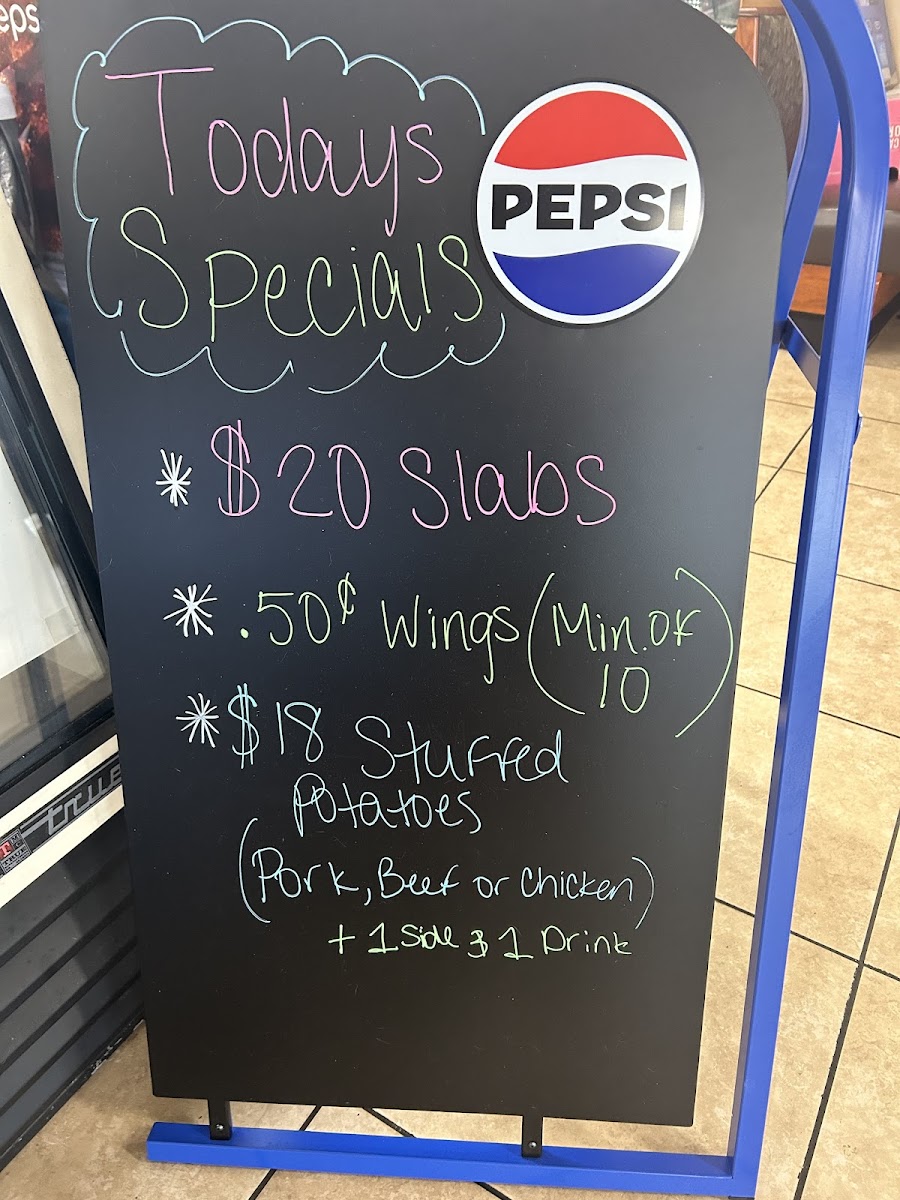 eps
Todays
Specials
PEPSI
* $20 Slabs
* .50¢ Wings (Min. OF
10)
* $18 Stuffed
Potatoes
(Pork, Beef or Chicken)
+ 1 Side & 1 Drink
true